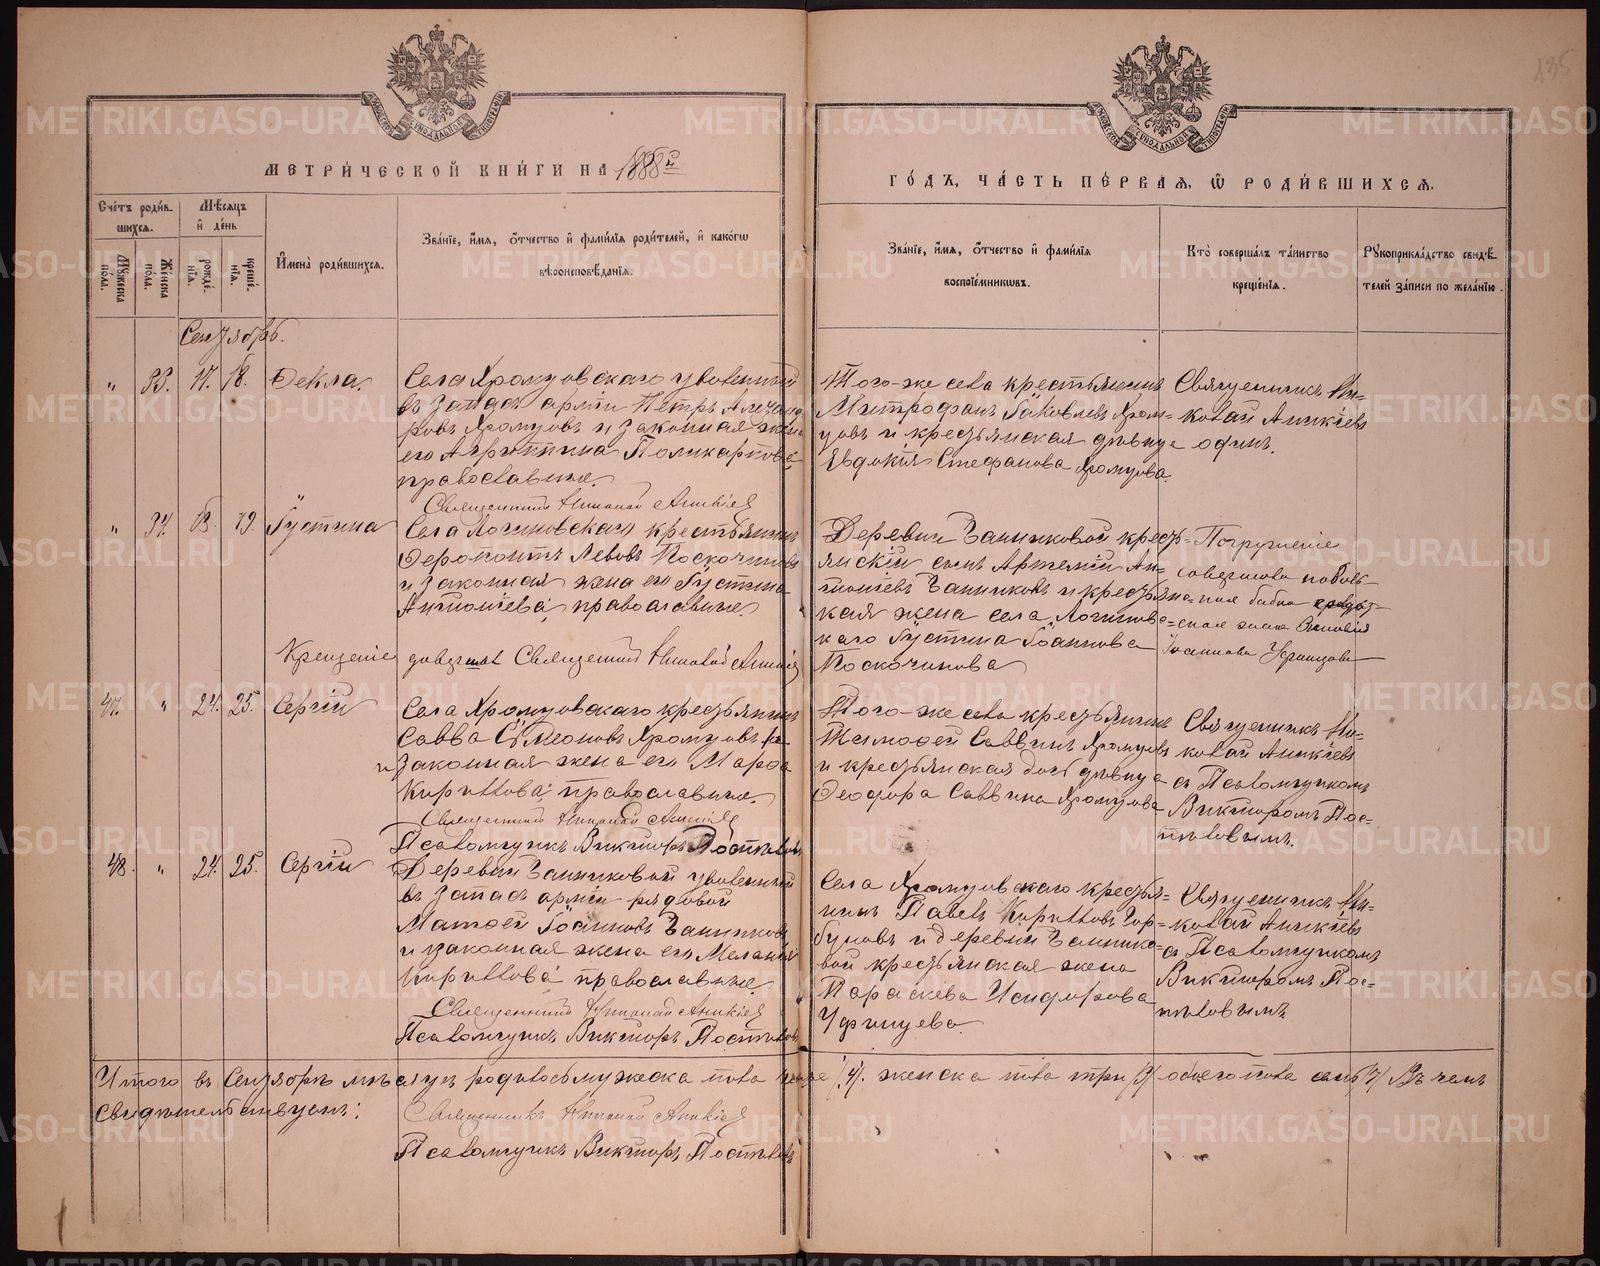 135
МОСКОВСКОЙ СѴНОДАЛЬНОЙ ТИПОГРАФІИ
МОСКОВСКОЙ СѴНОДАЛЬНОЙ ТИПОГРАФІИ
МЕТРИ́ЧЕСКОЙ КНИ́ГИ НА 1888й
ГО́ДЪ, ЧА́СТЬ ПЕ́РВАѦ, Ѡ РОДИ́ВШИХСѦ.
Сче́тъ роди́в-
шихсѧ.
Мѣ́сѧцъ
и҆ де́нь
Мꙋ́жеска
по́ла.
Же́нска
по́ла.
рожде́-
нїѧ.
креще́-
нїѧ.
И҆мена̀ роди́вшихсѧ.
Зва́нїе, и҆́мѧ, ѻ҆́тчество и҆ фами́лїѧ роди́телей, и҆ како́гѡ
вѣроисповѣ́данїѧ.
Зва́нїе, и҆́мѧ, ѻ҆́тчество и҆ фами́лїѧ
воспрїе́мникѡвъ.
Кто̀ соверша́лъ та́инство
креще́нїѧ.
Рꙋкоприкла́дство свидѣ́-
телей за́писи по жела́нїю.
Сентябрь.
„ 33. 17. 18. Ѳекла.
Села Хромцовскаго уволенный
въ запасъ арміи Петръ Алезанд
ровъ Хромцовъ и законная жена
его Агриппина Поликарпова,
православные.
Священникъ Николай Аникіев
Того-же села крестьянинъ
Митрофанъ Іаковлевъ Хром=
цовъ и крестьянская дѣвица
Евдокія Стефанова Хромцова.
Священникъ Ни=
колай Аникіевъ
одинъ.
„ 34. 18. 19. Іустина
Села Логиновскаго крестьянинъ
Ѳеропонтъ Левовъ Поскочиновъ
и законная жена его Іустина
Антоніева, православные.
Крещеніе довершилъ Священникъ Николай Аникіев
Деревни Банниковой кресть=
янскій сынъ Артемій Ан=
тоніевъ Банниковъ и крестьянс=
кая жена села Логиновс=
каго Іустина Іоаннова
Поскочинова
Погруженіе
совершала повиваль-
ная бабка крестьян-
ская жена Зиновія
Іоаннова Уфинцева
47. „ 24. 25. Сергій
Села Хромцовскаго крестьянинъ
Савва Сѵмеоновъ Хромцовъ
и законная жена его Марѳа
Кириллова, православные.
Священникъ Николай Аникіев
Псаломщикъ Викторъ Постниковъ
Того-же села крестьянинъ
Тимоѳей Саввинъ Хромцовъ
и крестьянская дочь дѣвица
Ѳеодора Саввина Хромцова
Священникъ Ни=
колай Аникіевъ
съ Псаломщикомъ
Викторомъ Пос=
тниковымъ.
48. „ 24. 25. Сергій
Деревни Банниковой уволенный
въ запасъ арміи рядовой
Матѳей Іоанновъ Банниковъ
и законная жена его Меланія
Кириллова православные.
Священникъ Николай Аникіев
Псаломщикъ Викторъ Постниковъ
Села Хромцовскаго крестья=
нинъ Павелъ Кирилловъ Гор=
буновъ и деревни Баннико=
вой крестьянская жена
Параскева Исидорова
Уфинцева.
Священникъ Ни=
колай Аникіевъ
съ Псаломщикомъ
Викторомъ Пос=
тниковымъ
Итого въ Сентябрѣ мѣсяцѣ родилось мужеска пола четыре /4/. женска пола три /3/ обоего пола семь /7/ Въ чемъ
свидѣтельствуемъ:
Священникъ Николай Аникіев
Псаломщикъ Викторъ Постниковъ